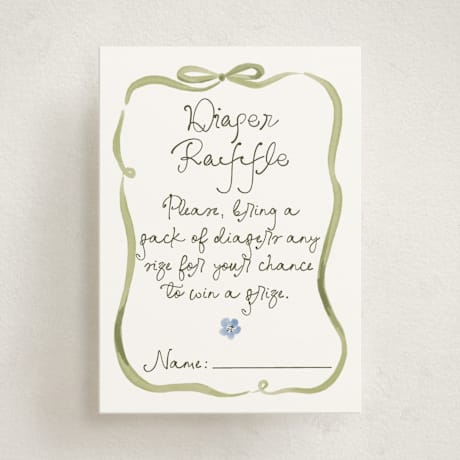 Diaper
Raffle
Please, bring a
pack of diapers any
size for your chance
to win a prize.
Name: